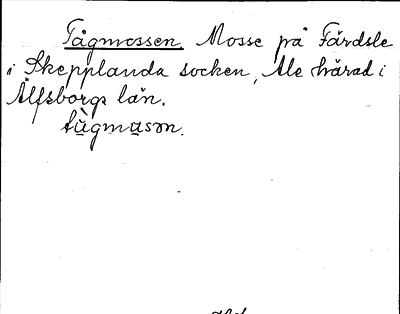 Tågmossen. Mosse på Färdsle
i Skepplanda socken, Ale härad i
Älfsborgs län.
tùgmasən.